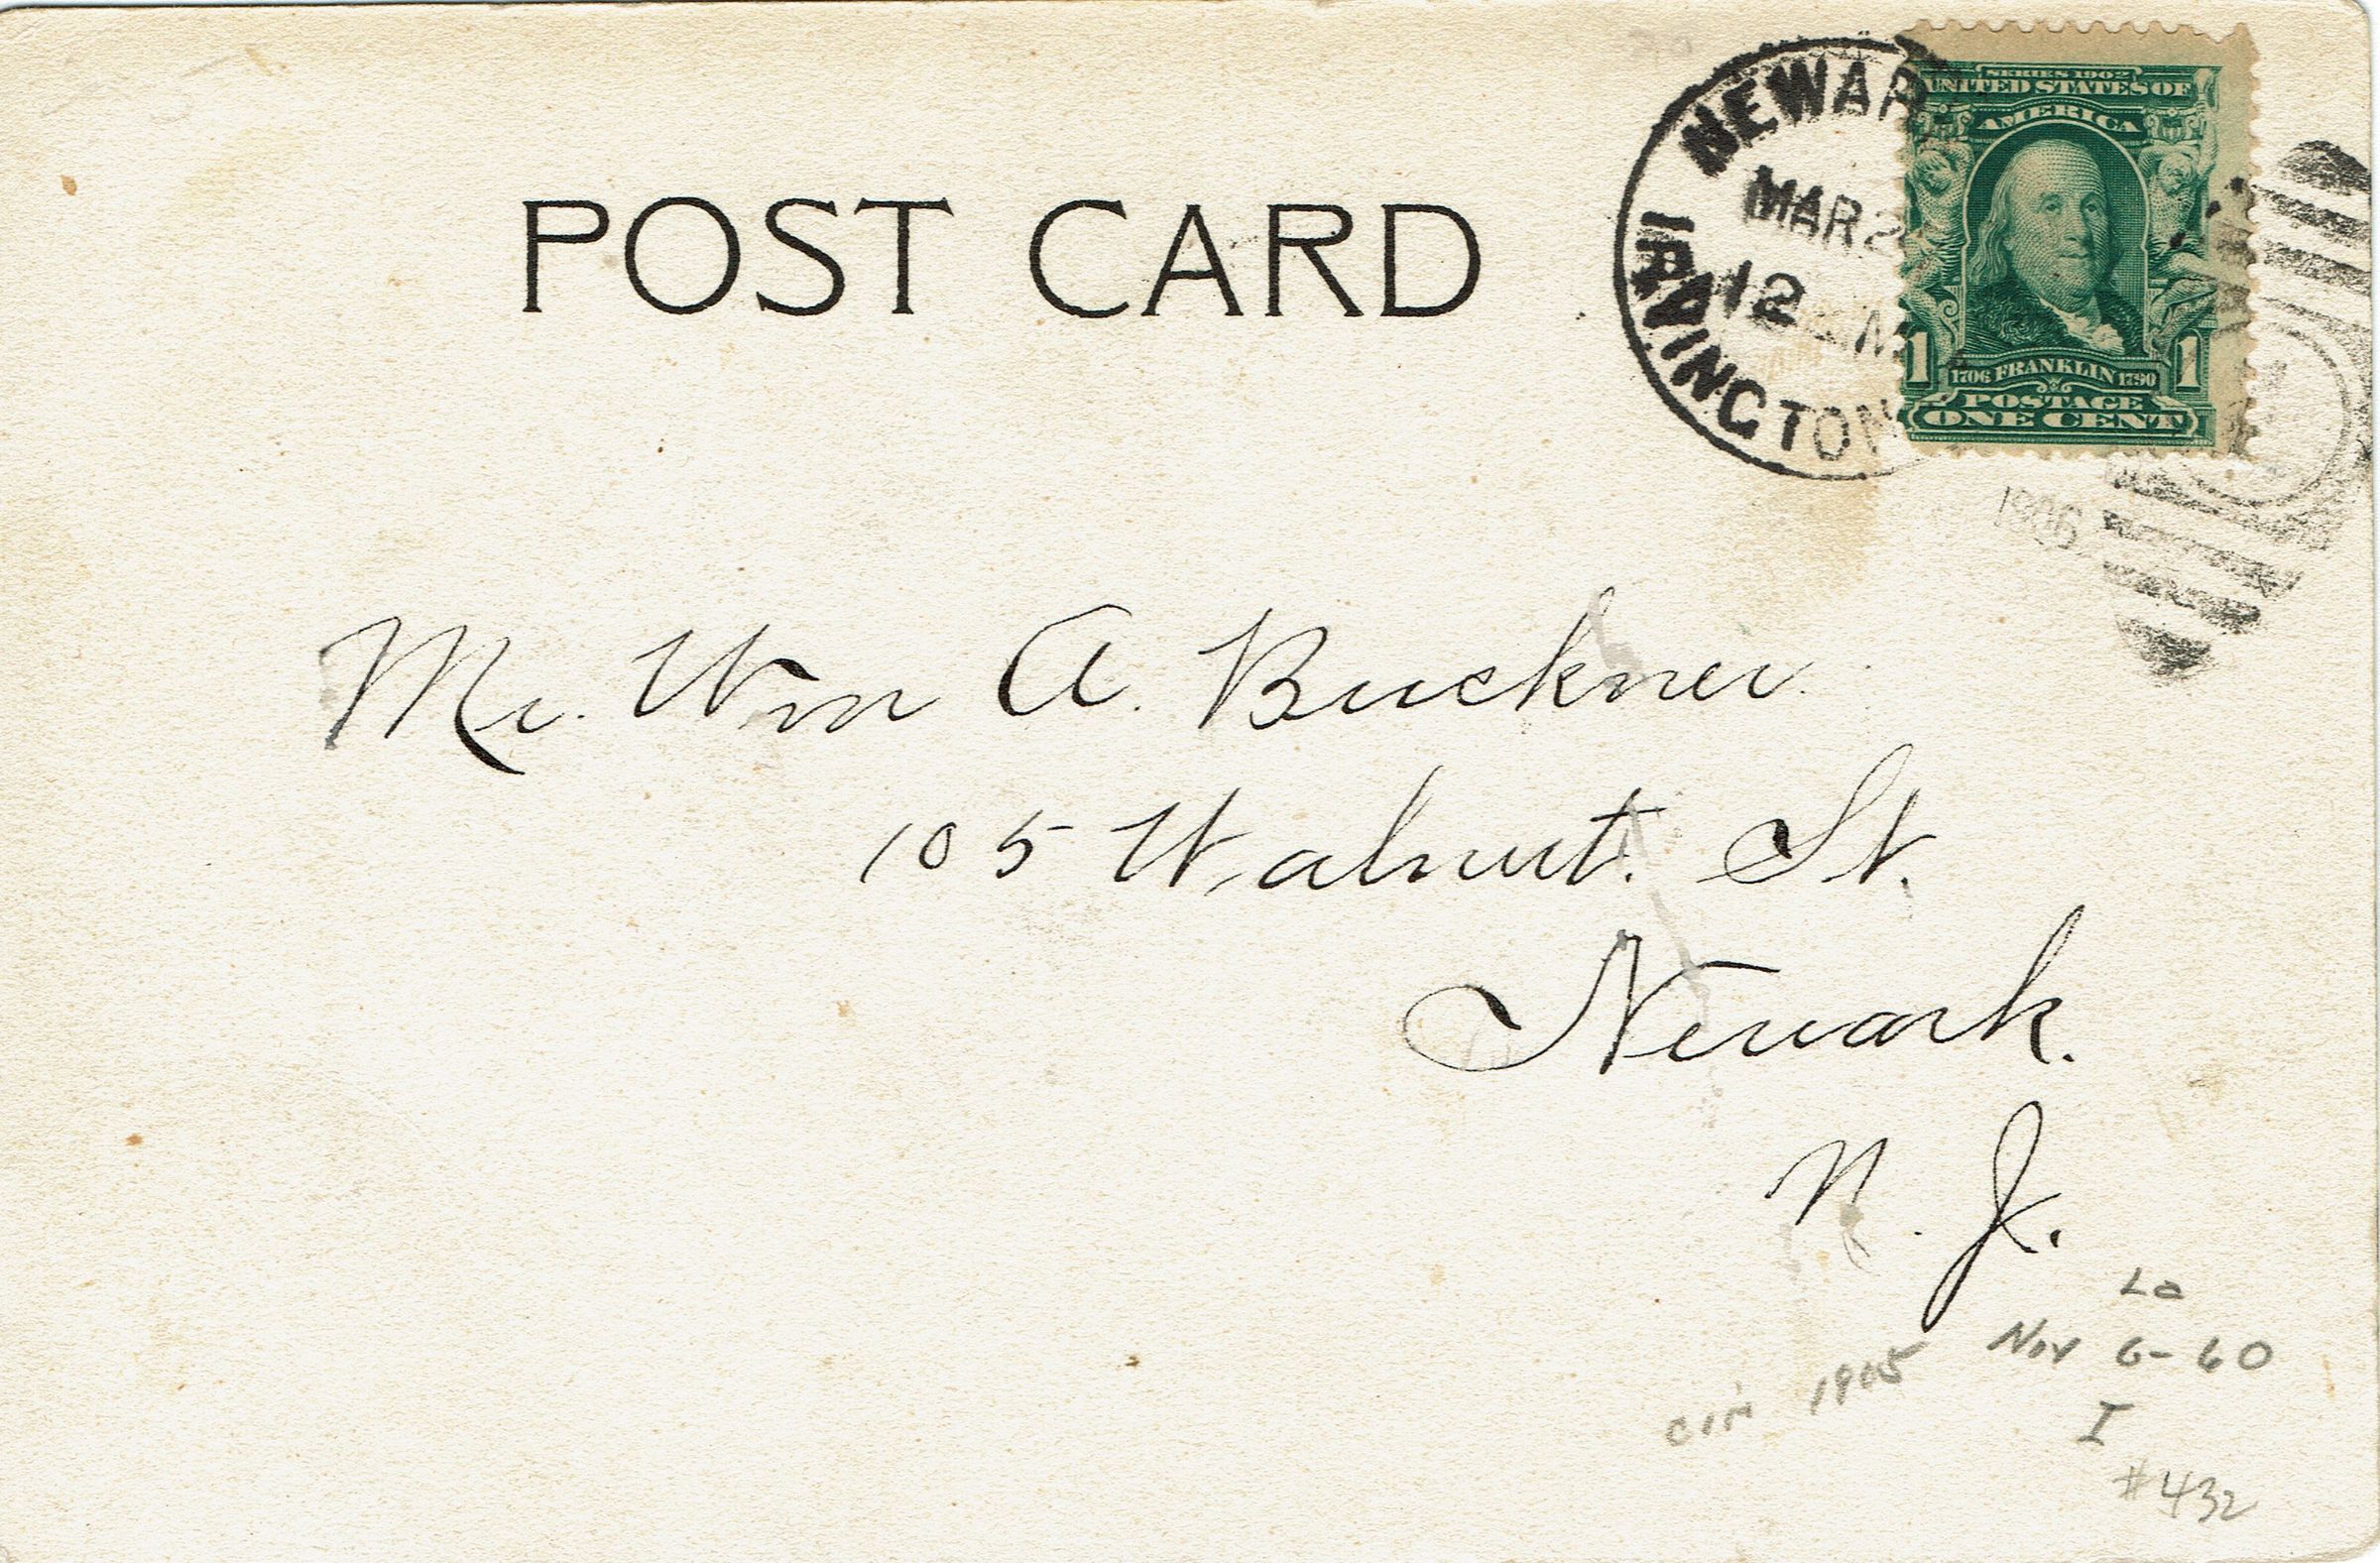 POST CARD
NEWAR
MAR 2
12 M
IRVINGTON
SERIES 1902
UNITED STATES OF
AMERICA
1 1
1706 FRANKLIN 1790
POSTAGE
ONE CENT
1906
Mr. Wm A. Buckner.
105 Walnut. St.
Newark.
N. J.
La
Nov 6-60
cir 1905
I
#432